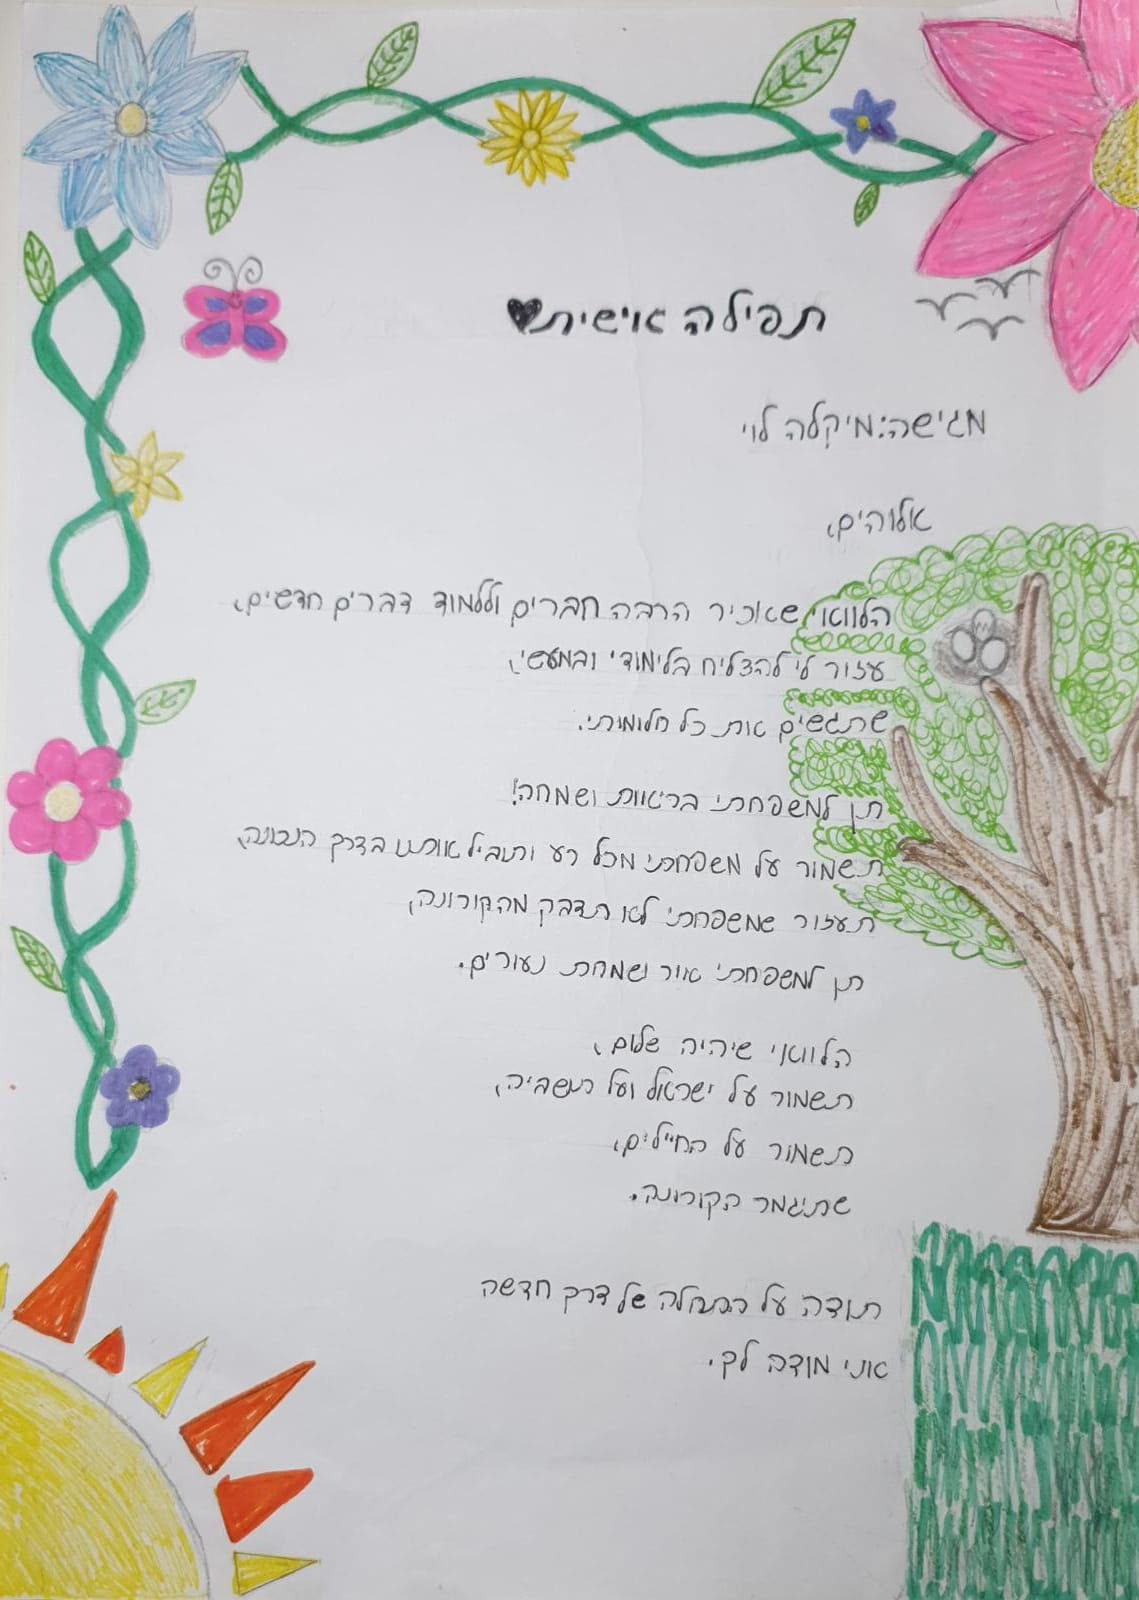 תפילה אישית♥
מגישה:מיקלה לוי
אלוהים,
הלוואי שאכיר הרבה חברים וללמוד דברים חדשים,
עזור לי להצליח בלימודי ובמעשי,
שתגשים את כל חלומותי.
תן למשפחתי בריאות ושמחה!
תשמור על משפחתי מכל רע ותוביל אותנו בדרך הנכונה,
תעזור שמשפחתי לא תדבק מהקורונה,
תן למשפחתי אור ושמחת נעורים.
הלוואי שיהיה שלום,
תשמור על ישראל ועל תושביה,
תשמור על החיילים,
שתיגמר הקורונה.
תודה על התחלה של דרך חדשה
אני מודה לך.